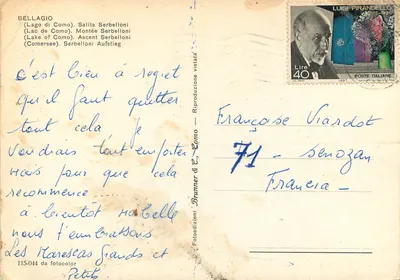 BELLAGIO
(Lago di Como). Salita Serbelloni
(Lac de Como). Montée Serbelloni
(Lake of Como). Ascent Serbelloni
(Comersee). Serbelloni Aufstieg
c'est bien à regret
qu'il faut quitter
tout cela, je
voudrais tout emporter
mais pour que cela
recommence....
à bientôt ma belle
nous t'embrassons
Les Marescas Grands et
Petits
115/044 da fotocolor
Fotoedizioni Brunner & C., Como - Riproduzione vietata
LUIGI PIRANDELLO
Lire
40
POSTE ITALIANE
Françoise Viardot
71 - Senozan
Francia -